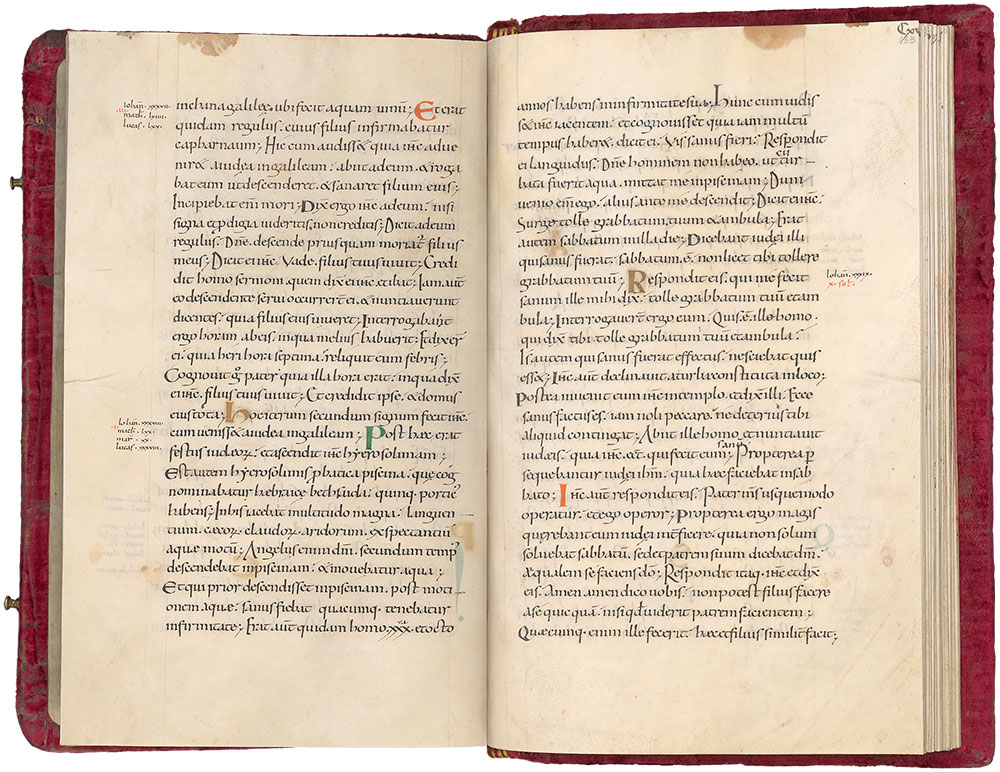 Iohan. xxxvii.
math. lxiiii.
lucas. lxv.
inchana galileę. ubi fecit aquam uinu; Et erat
quidam regulus. cuius filius infirmabatur
capharnaum; Hic cum audiss& quia ihc adue
nir& a iudea in galileam. abiit ad eum. & roga
bat eum ut descender&. & sanaret filium eius;
Incipiebat eni mori; Dix ergo ihc ad eum. nisi
signa & pdigia uideritis. non creditis; Dicit ad eum
regulus; Dne. descende priusquam moriat filius
meus; Dicit ei ihc. Vade. filius tuus uiuit; Credi
dit homo sermoni. quem dix ei ihc. et ibat; Iam. aut
eo descendente serui occurrert ei. & nuntiauerunt
dicentes. quia filius eius uiueret; Interrogabant
ergo horam ab eis. in qua melius habuerit; Et dixer
ei. quia heri hora septima. reliquit eum febris;
Cognouit g pater quia illa hora erat. in qua dix
ei ihc. filius tuus uiuit; Et credidit ipse. & domus
eius tota; Hoc iterum secundum signum fecit ihc.
Iohan. xxxviii.
math. lxx.
mar. xx.
lucas. xxxvii.
cumueniss& a iudea in galileam; Post hęc erat
festus iudeor. et ascendit ihc hyerosolimam;
Est autem hyerosolimis pbatica piscina. quę cog
nominabatur haebraice bethsaida. quinq. portic
habens; In his iacebat multitudo magna. languen
tium. cęcor. claudor. aridorum. expectantiu
aquę motu; Angelus enim dni. secundum temp
descendebat in piscinam. & mouebatur aqua;
Et qui prior descendisset in piscinam. post moti
onem aquę. sanus fiebat quacumq. tenebatur
infirmitate; Erat aut quidam homo. xxx. et octo
annos habens in infirmitate sua; Hunc cum uidis
s& ihc iacentem. et cognouisset quia iam multu
tempus haber&. dicit ei. Vis sanus fieri; Respondit
ei languidus. Dne hominem non habeo. ut cum tur
bata fuerit aqua. mittat me in piscinam; Dum
uenio eni ego. alius ante me descendit; Dicit ei ihc.
Surge tolle grabbatum tuum & ambula; Erat
autem sabbatum in illa die; Dicebant iudei illi
qui sanus fuerat. sabbatum. e. non licet tibi tollere
grabbatum tuu; Respondit eis. qui me fecit
Iohan. xxxix.
x. sol.
sanum ille mihi dix. tolle grabbatum tuu et am
bula; Interrogauert ergo eum. Quis. e. ille homo.
qui dix tibi. tolle grabbatum tuu et ambula.
Is autem qui sanus fuerat effectus. nesciebat quis
ess&; Ihc aut declinauit a turba constituta in loco;
Postea inuenit eum ihc in templo. et dix illi. Ecce
sanus factus es. iam noli peccare. ne deterius tibi
aliquid contingat; Abiit ille homo. et nuntiauit
iudeis. quia ihc. e&. qui fecit eum sanu; Propterea p
sequebantur iudei ihm. quia hęc faciebat in sab
bato; Ihc aut respondit eis. Pater ms usque modo
operatur. et ego operor; Propterea ergo magis
querebant eum iudei interficere. quia non solum
soluebat sabbatu. sed et patrem suum dicebat dm.
ęqualem se faciens do; Respondit itaq. ihc et dix
eis. Amen amen dico uobis. non potest filius facere
a se quicquā. nisi qd uiderit patrem facientem;
Quęcumq. enim ille fecerit. hęc et filius similit facit;